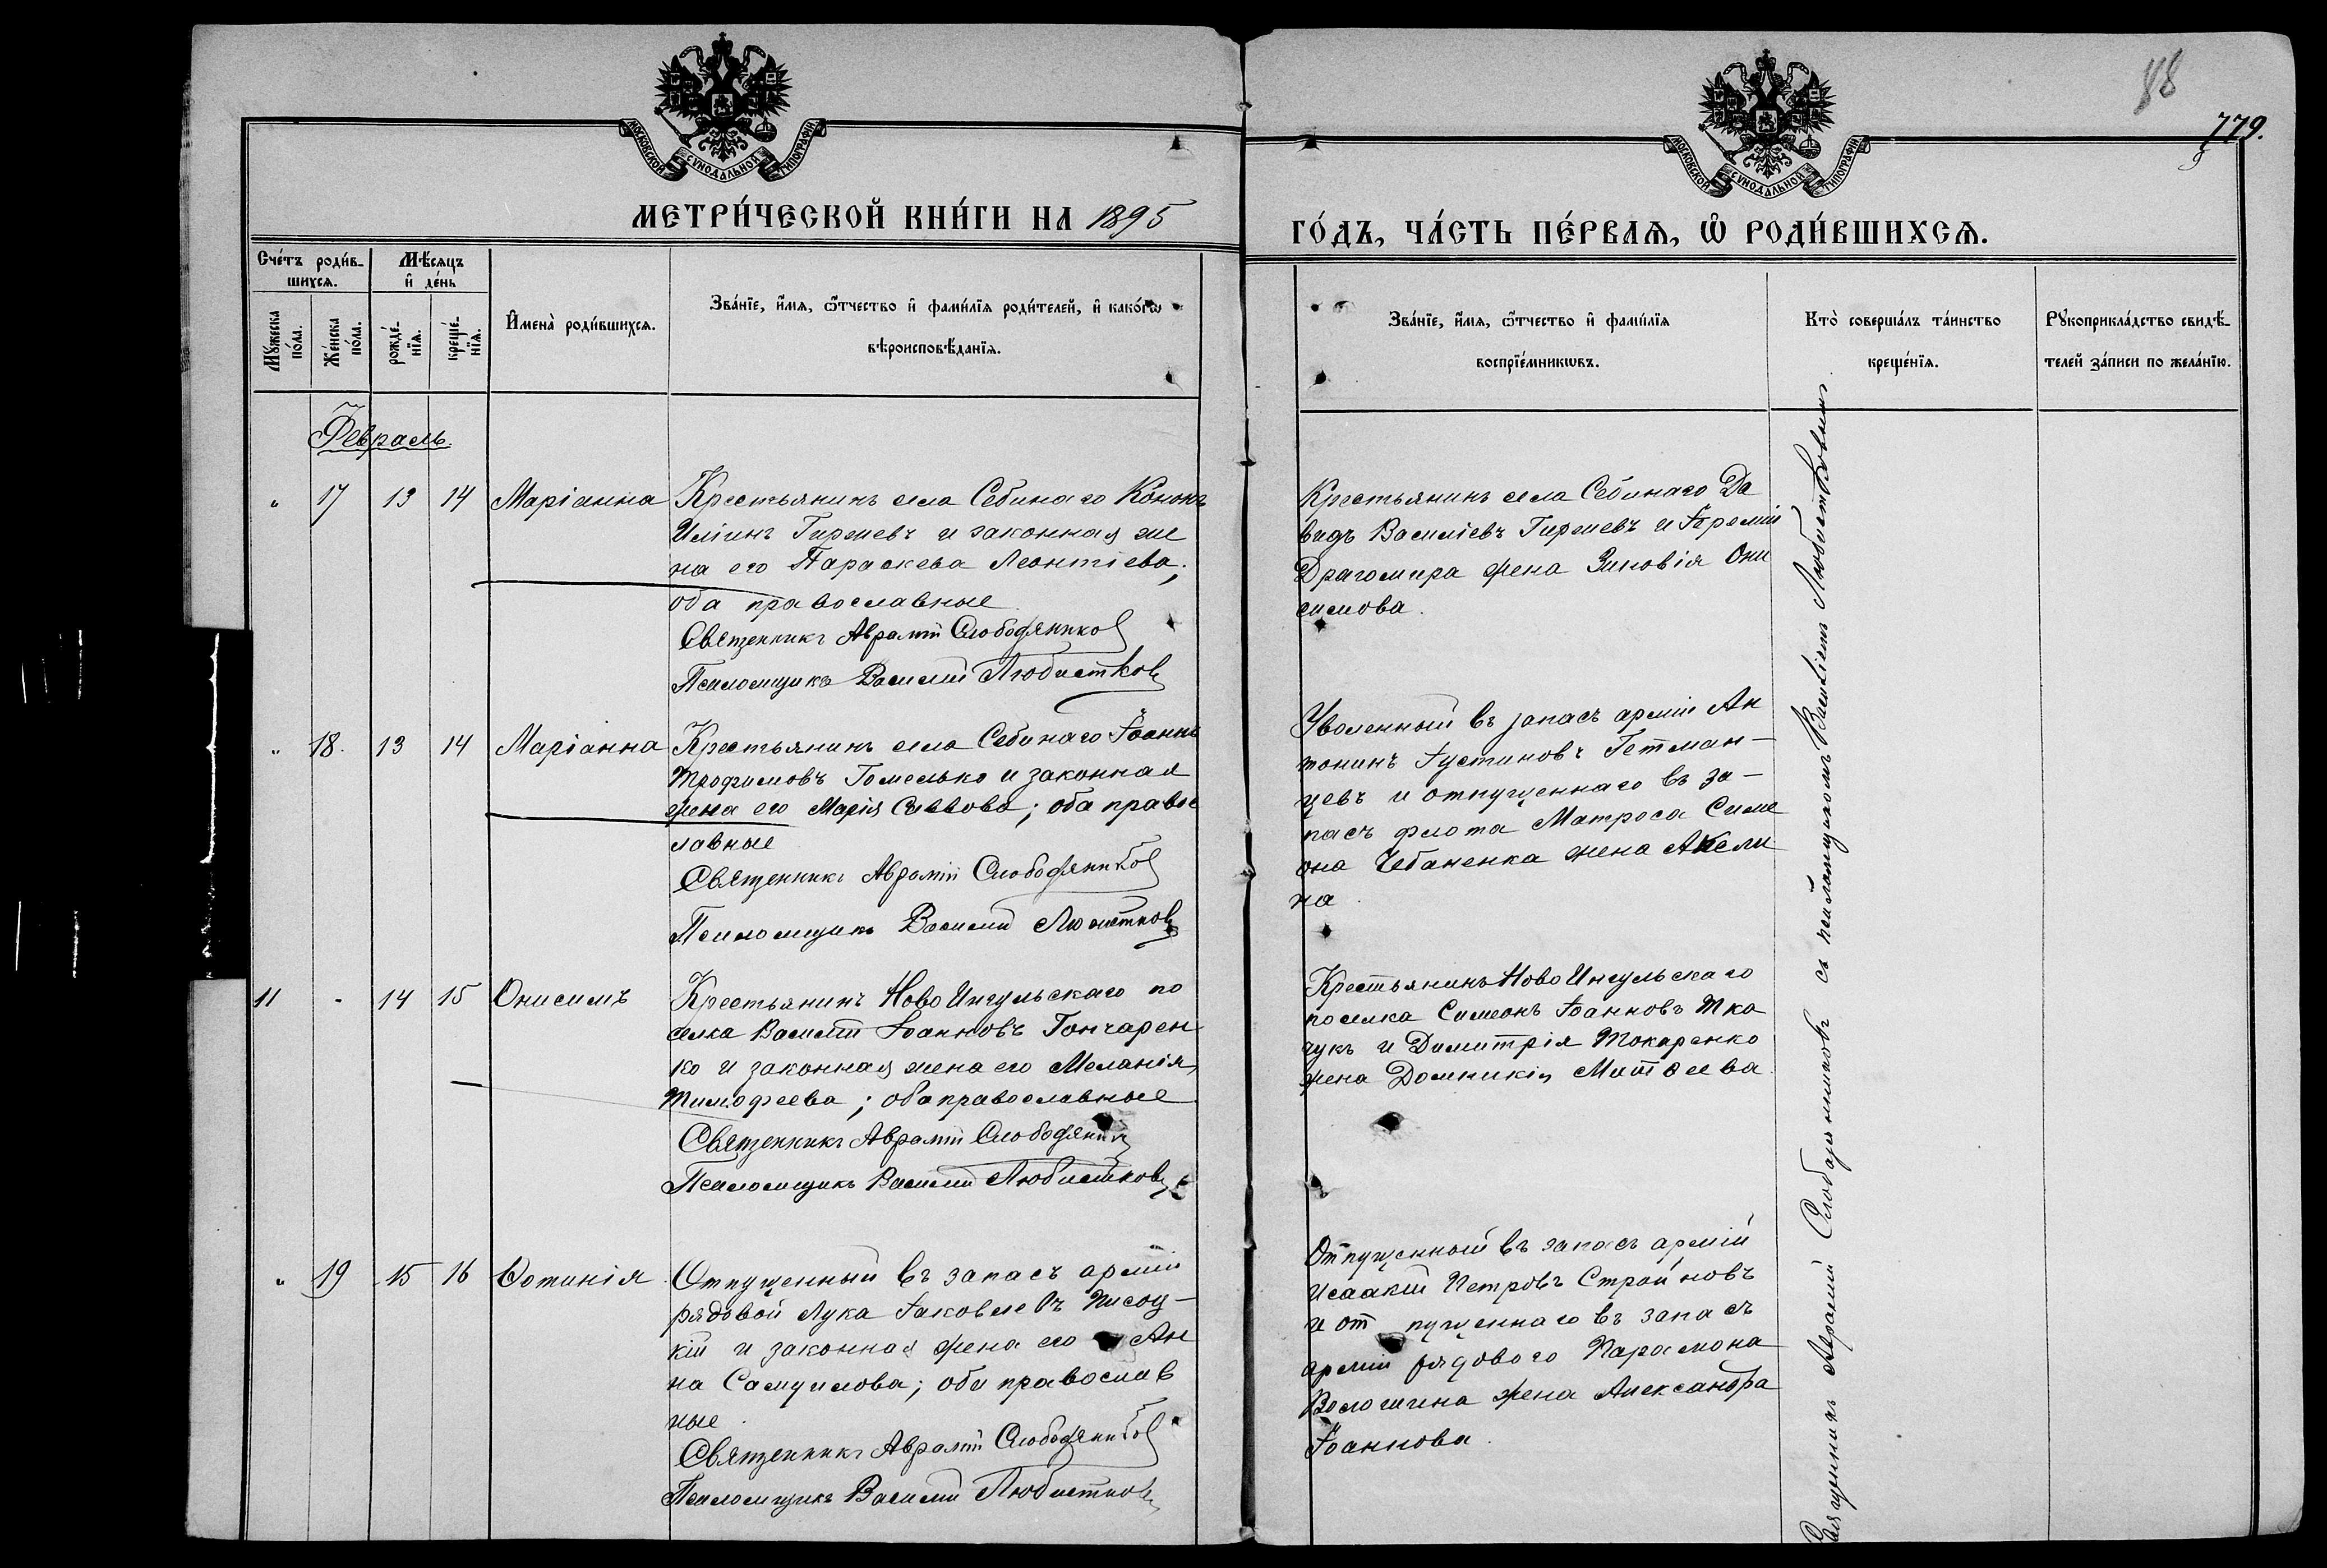 88
779.
МОСКОВСКОЙ СѴНОДАЛЬНОЙ ТИПОГРАФІИ
МОСКОВСКОЙ СѴНОДАЛЬНОЙ ТИПОГРАФІИ
МЕТРИ́ЧЕСКОЙ КНИ́ГИ НА 1895
ГО́ДЪ, ЧА́СТЬ ПЕ́РВАѦ, Ѡ҆ РОДИ́ВШИХСѦ.
Сче́тъ роди́в-
шихсѧ.
Мꙋ́жеска по́ла.
Же́нска по́ла.
Мѣ́сѧцъ
и҆ де́нь
рожде́-нїѧ.
креще́-нїѧ.
И҆мена̀ роди́вшихсѧ.
Зва́нїе, и҆́мѧ, ѻ҆́тчество и҆ фами́лїѧ роди́телей, и҆ како́гѡ
вѣроисповѣ́данїѧ.
Зва́нїе, и҆́мѧ, ѻ҆́тчество и҆ фами́лїѧ
воспрїе́мникѡвъ.
Кто̀ соверша́лъ та́инство
креще́нїѧ.
Рꙋкоприкла́дство свидѣ́-
телей за́писи по жела́нїю.
Февраль.
" 17 13 14 Маріанна
Крестьянинъ села Себинаго Кононъ
Иліинъ Гиржевъ и законная же
на его Параскева Леонтіева;
оба православные
Священникъ Аврамій Слободяников
Псаломщикъ Василій Любистков
Крестьянинъ села Себинаго Да
видъ Василіевъ Гиржевъ и Іереміи
Драгомира жена Зиновія Они
симова.
" 18. 13 14 Маріанна
Крестьянинъ села Себинаго Іоаннъ
Трофимовъ Гомелько и законная
жена его Марія Саввова; оба правос
лавные
Священникъ Аврамій Слободяников
Псаломщикъ Василій Любистков
Уволенный въ запасъ арміи Ан
тонинъ Іустиновъ Гетман-
цевъ и отпущеннаго въ за-
пасъ флота Матроса Симе
она Чебаненка жена Акели
на.
11 - 14 15 Онисимъ
Крестьянинъ Ново Ингульскаго по
селка Василій Іоанновъ Гончарен
ко и законная жена его Меланія
Тимофеева; оба православные
Священникъ Аврамій Слободяник
Псаломщикъ Василій Любистков
Крестьянинъ Ново Ингульскаго
поселка Симеонъ Іоанновъ Тка
чукъ и Димитрія Токаренко
жена Домникія Матѳеева
" 19 15 16 Ѳотинія
Отпущенный въ запасъ арміи
рядовой Лука Іаковлевъ Писоц-
кій и законная жена его Ан
на Самуилова; оба православ
ные.
Священникъ Аврамій Слободяников
Псаломщикъ Василій Любистков
Отпущенный въ запасъ арміи
Исаакій Петровъ Стройновъ
и отпущеннаго въ запасъ
арміи рядового Парамона
Волошина жена Александра
Іоаннова.
Священникъ Аврамій Слободяниковъ съ псаломщикомъ Василіемъ Любистковымъ